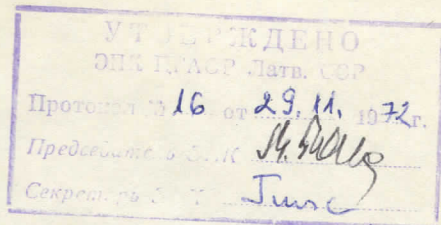 УТВЕРЖДЕНО
ЭПК ЦГАОР Латв. ССР
Протокол № 16 от 29.11. 1972г.
Председатель ЭПК
Секретарь ЭПК